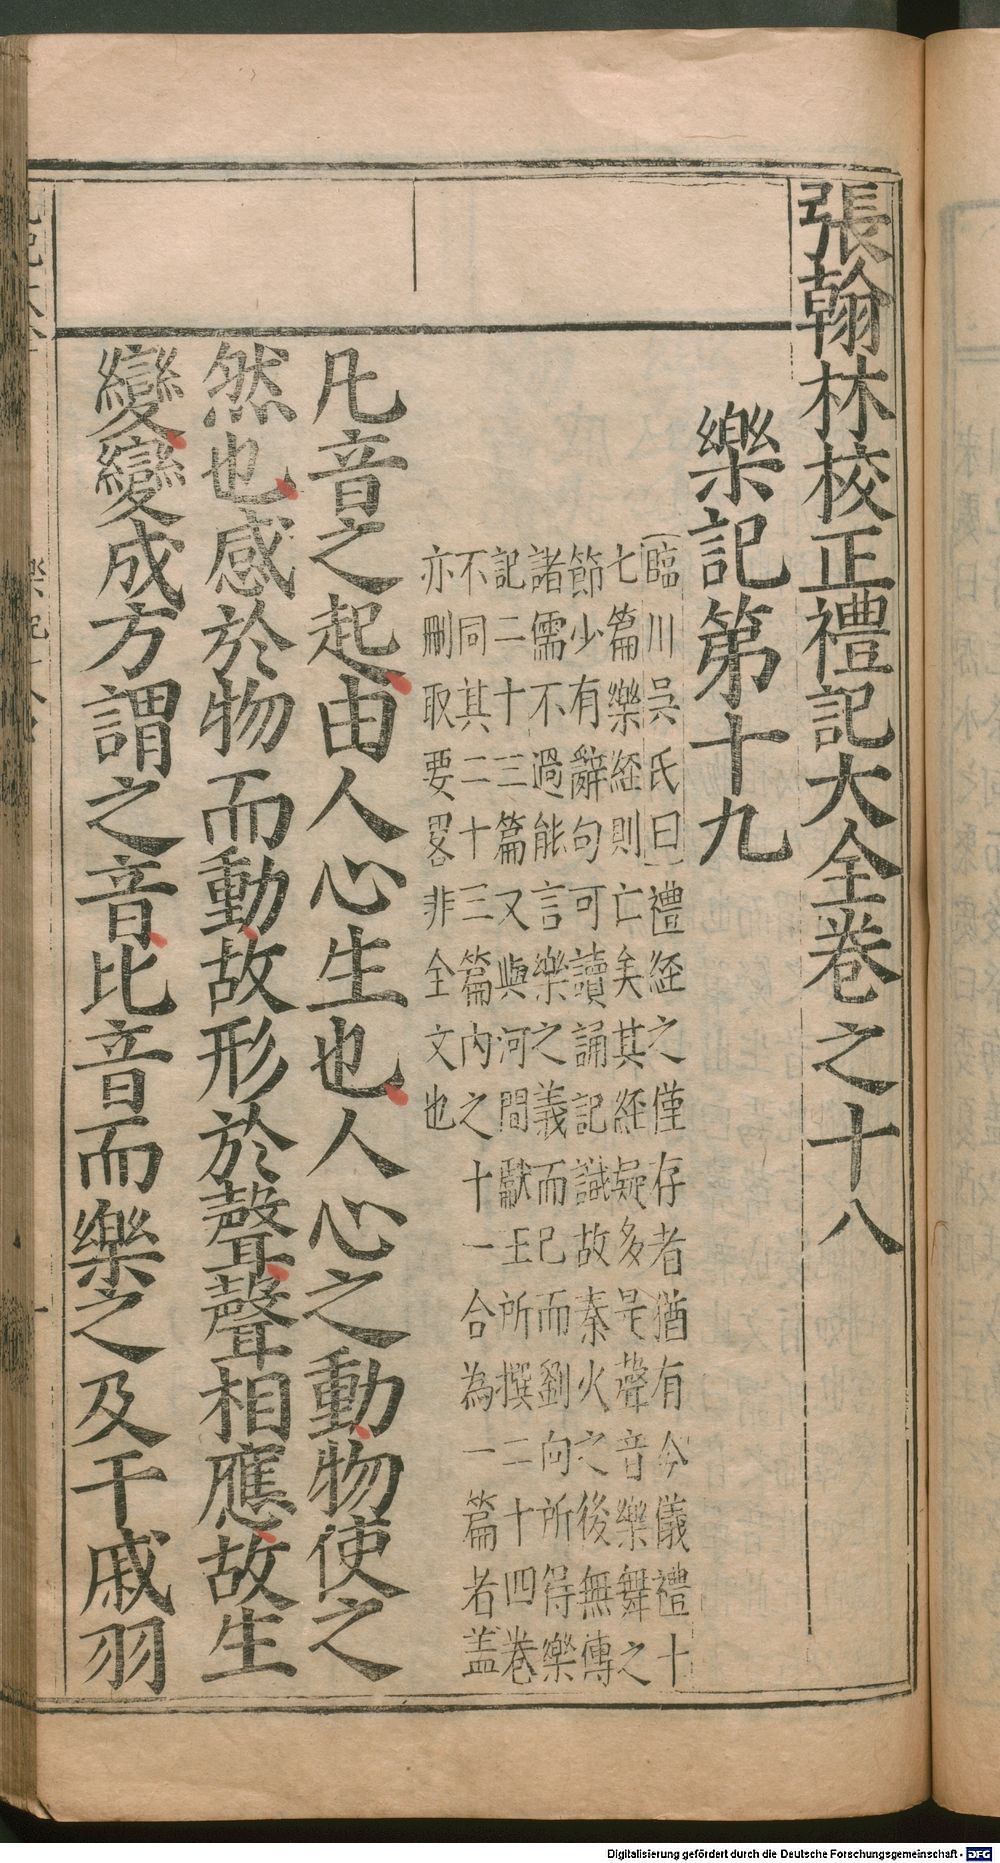 張翰林校正禮記大全卷之十八
樂記第十九
臨川吳氏曰禮経之僅存者猶有今儀禮十
七篇樂経則亡矣其経疑多是聲音樂舞之
節少有辭句可讀誦記識故秦火之後無傳
諸儒不過能言樂之義而已而劉向所得樂
記二十三篇又與河間獻王所撰二十四卷
不同其二十三篇內之十一合為一篇者盖
亦刪取要畧非全文也
凡音之起由人心生也人心之動物使之
然也感於物而動故形於聲聲相應故生
變變成方謂之音比音而樂之及干戚羽
Digitalisierung gefördert durch die Deutsche Forschungsgemeinschaft - DFG